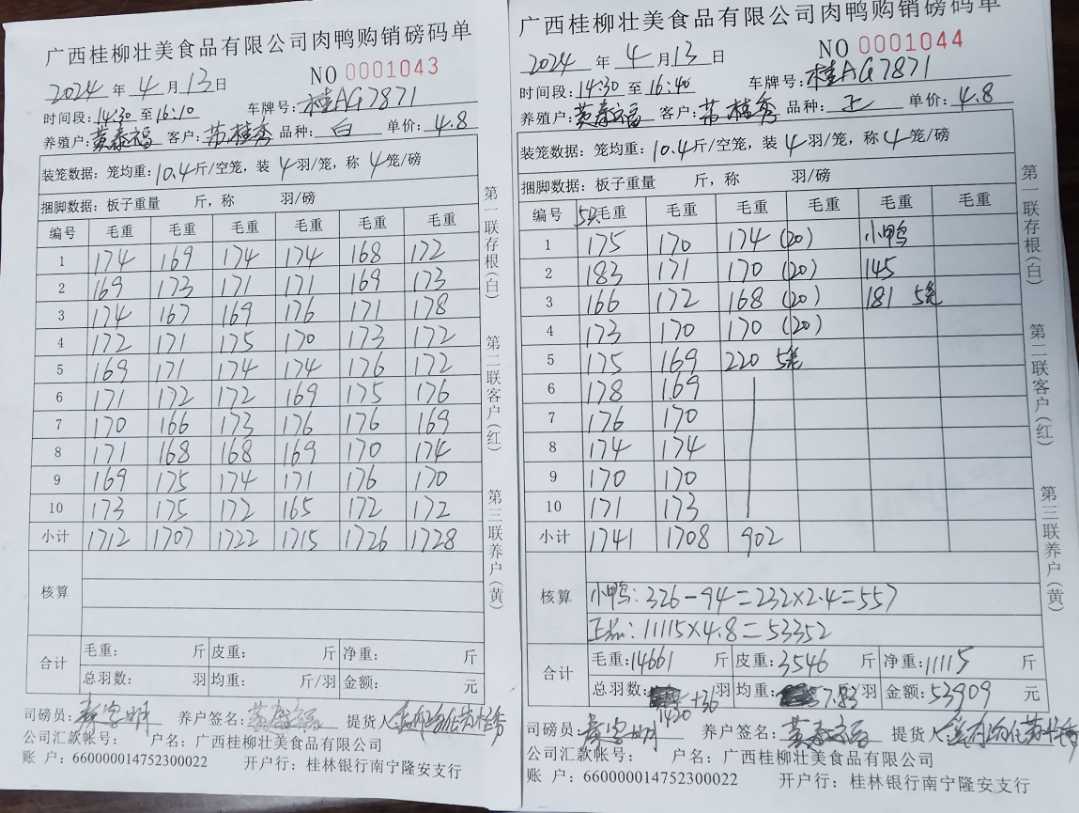 广西桂柳壮美食品有限公司肉鸭购销磅码单
2024 年 4 月 13 日 NO 0001043
时间段: 14:30 至 16:10 车牌号: 桂AG7871
养殖户: 黄春福 客户: 苏桂秀 品种: 白 单价: 4.8
装笼数据: 笼均重: 10.4 斤/空笼, 装 4 羽/笼, 称 4 笼/磅
捆脚数据: 板子重量 斤, 称 羽/磅
编号 毛重 毛重 毛重 毛重 毛重 毛重
1 174 169 174 174 168 172
2 169 173 171 171 169 173
3 174 167 169 176 171 178
4 172 171 175 170 173 172
5 169 171 174 174 176 172
6 171 172 172 169 175 176
7 170 166 173 176 176 169
8 171 168 168 169 170 174
9 169 175 174 171 176 170
10 173 175 172 165 172 172
小计 1712 1707 1722 1715 1726 1728
核算
合计 毛重: 斤 皮重: 斤 净重: 斤
总羽数: 羽 均重: 斤/羽 金额: 元
司磅员: 养户签名: 提货人
公司汇款帐号: 户名: 广西桂柳壮美食品有限公司
账 户: 660000014752300022 开户行: 桂林银行南宁隆安支行
第一联存根(白) 第二联客户(红) 第三联养户(黄)
广西桂柳壮美食品有限公司肉鸭购销磅码单
2024 年 4 月 13 日 NO 0001044
时间段: 14:30 至 16:40 车牌号: 桂AG7871
养殖户: 黄春福 客户: 苏桂秀 品种: 单价: 4.8
装笼数据: 笼均重: 10.4 斤/空笼, 装 4 羽/笼, 称 4 笼/磅
捆脚数据: 板子重量 斤, 称 羽/磅
编号 5只 毛重 毛重 毛重 毛重 毛重 毛重
1 175 170 174 (20) 小鸭
2 183 171 170 (20) 145
3 166 172 168 (20) 181 5笼
4 173 170 170 (20)
5 175 169 220 5笼
6 178 169
7 176 170
8 174 174
9 170 170
10 171 173
小计 1741 1708 902
核算 小鸭: 326-94=232×2.4=557
正品: 11115×4.8=53352
合计 毛重: 14661 斤 皮重: 3546 斤 净重: 11115 斤
总羽数: 1420 +36 羽 均重: 7.83 羽 金额: 53909 元
司磅员: 养户签名: 黄春福 提货人
公司汇款帐号: 户名: 广西桂柳壮美食品有限公司
账 户: 660000014752300022 开户行: 桂林银行南宁隆安支行
第一联存根(白) 第二联客户(红) 第三联养户(黄)